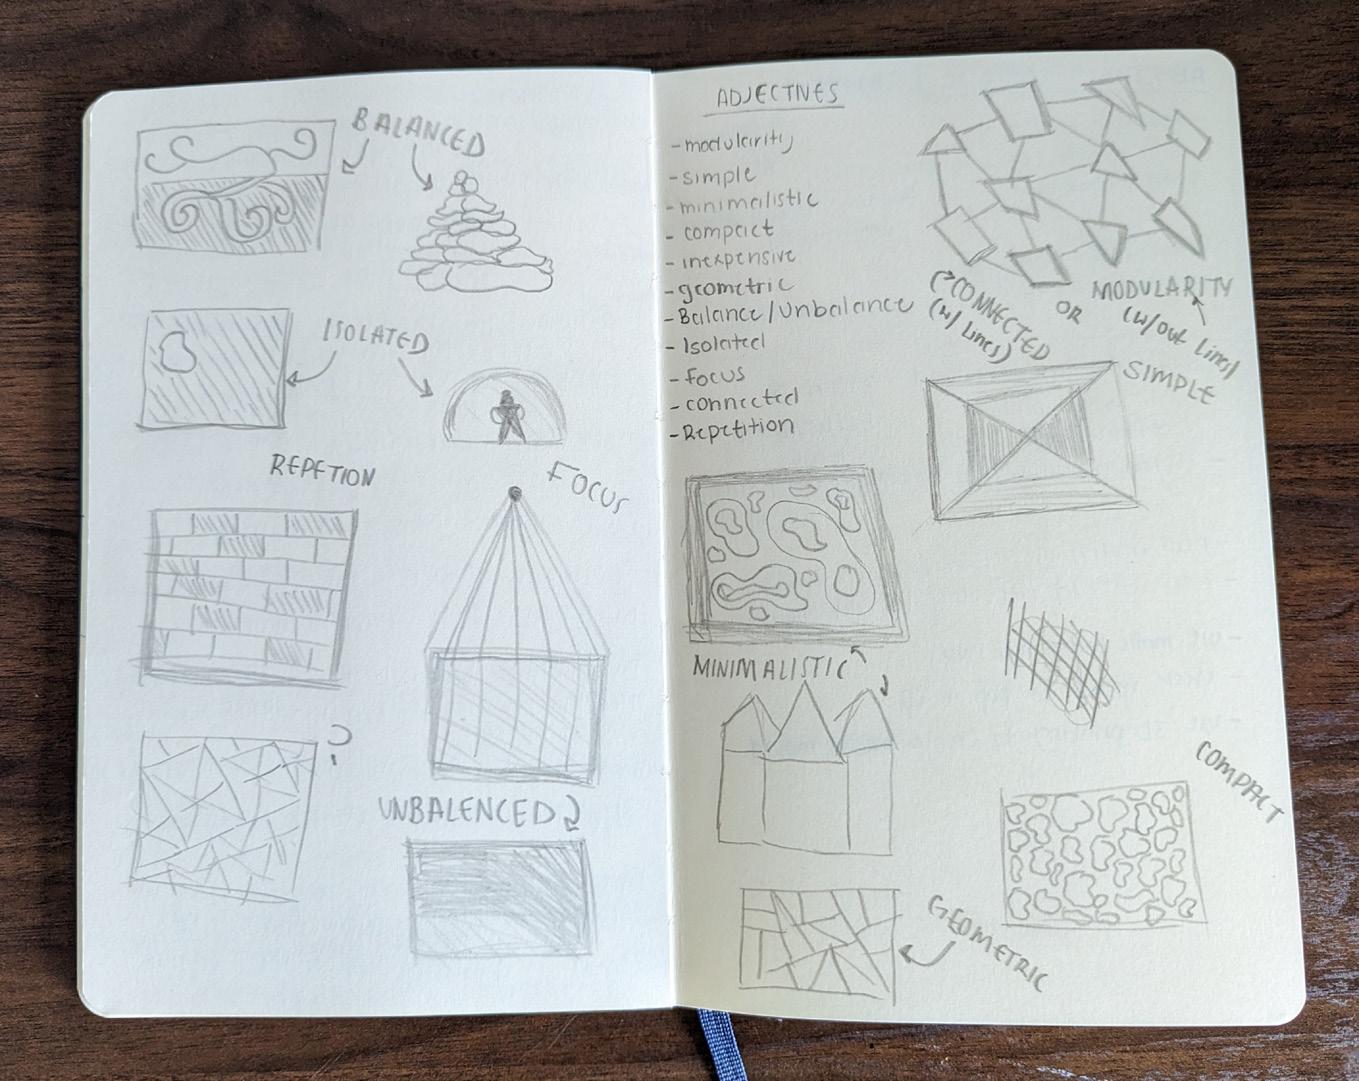 BALANCED
ISOLATED
REPETION
FOCUS
?
UNBALENCED
ADJECTIVES
- modularity
- simple
- minimalistic
- compact
- inexpensive
- geometric
- Balance/Unbalance
- Isolated
- Focus
- connected
- Repetition
CONNECTED
(w/ Lines)
OR
MODULARITY
(w/out Lines)
SIMPLE
MINIMALISTIC
COMPACT
GEOMETRIC